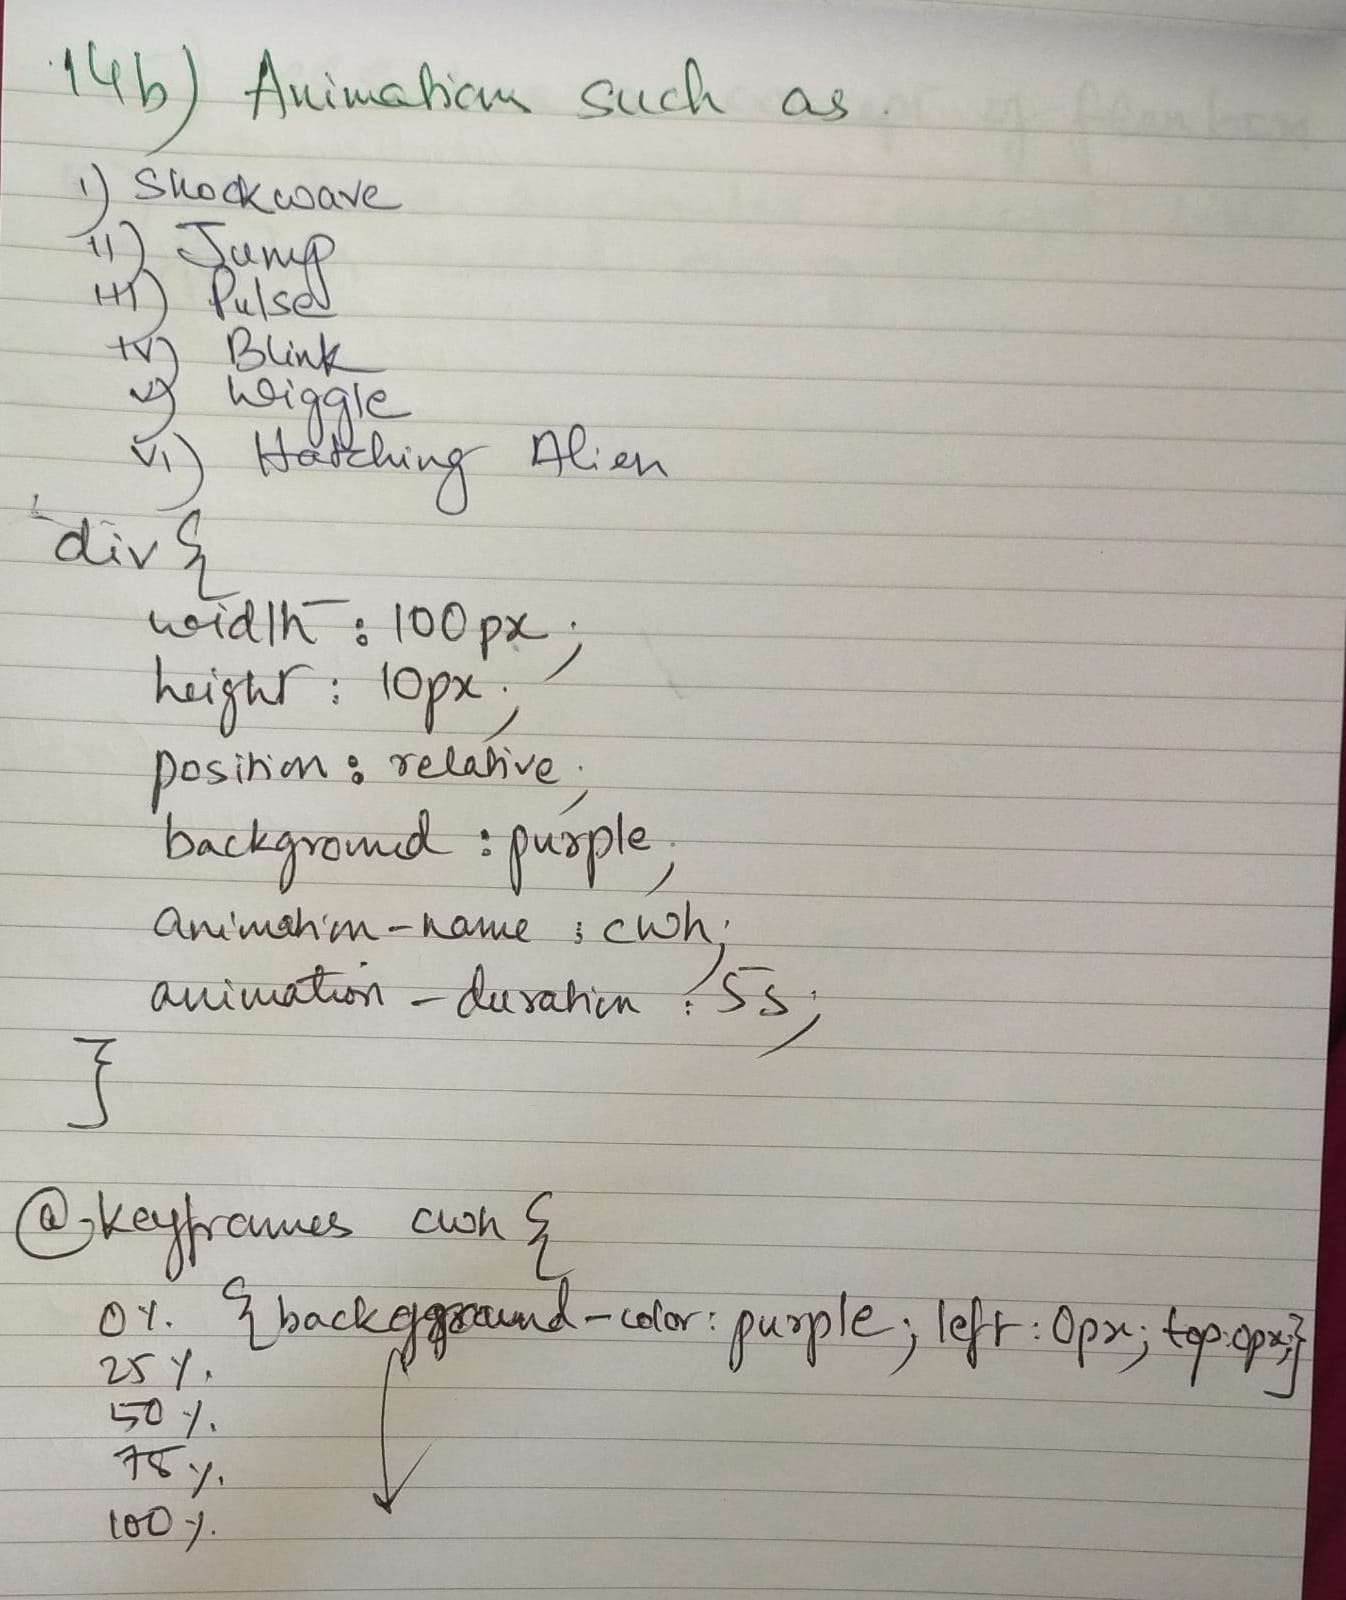 14b) Animations such as
i) Shockwave
ii) Jump
iii) Pulse
iv) Blink
v) Wiggle
vi) Hatching Alien
div {
width : 100px;
height : 10px;
position : relative;
background : purple;
animation-name : cwh;
animation-duration : 5s;
}
@keyframes cwh {
0% {background-color: purple; left: 0px; top: 0px;}
25%
50%
75%
100%